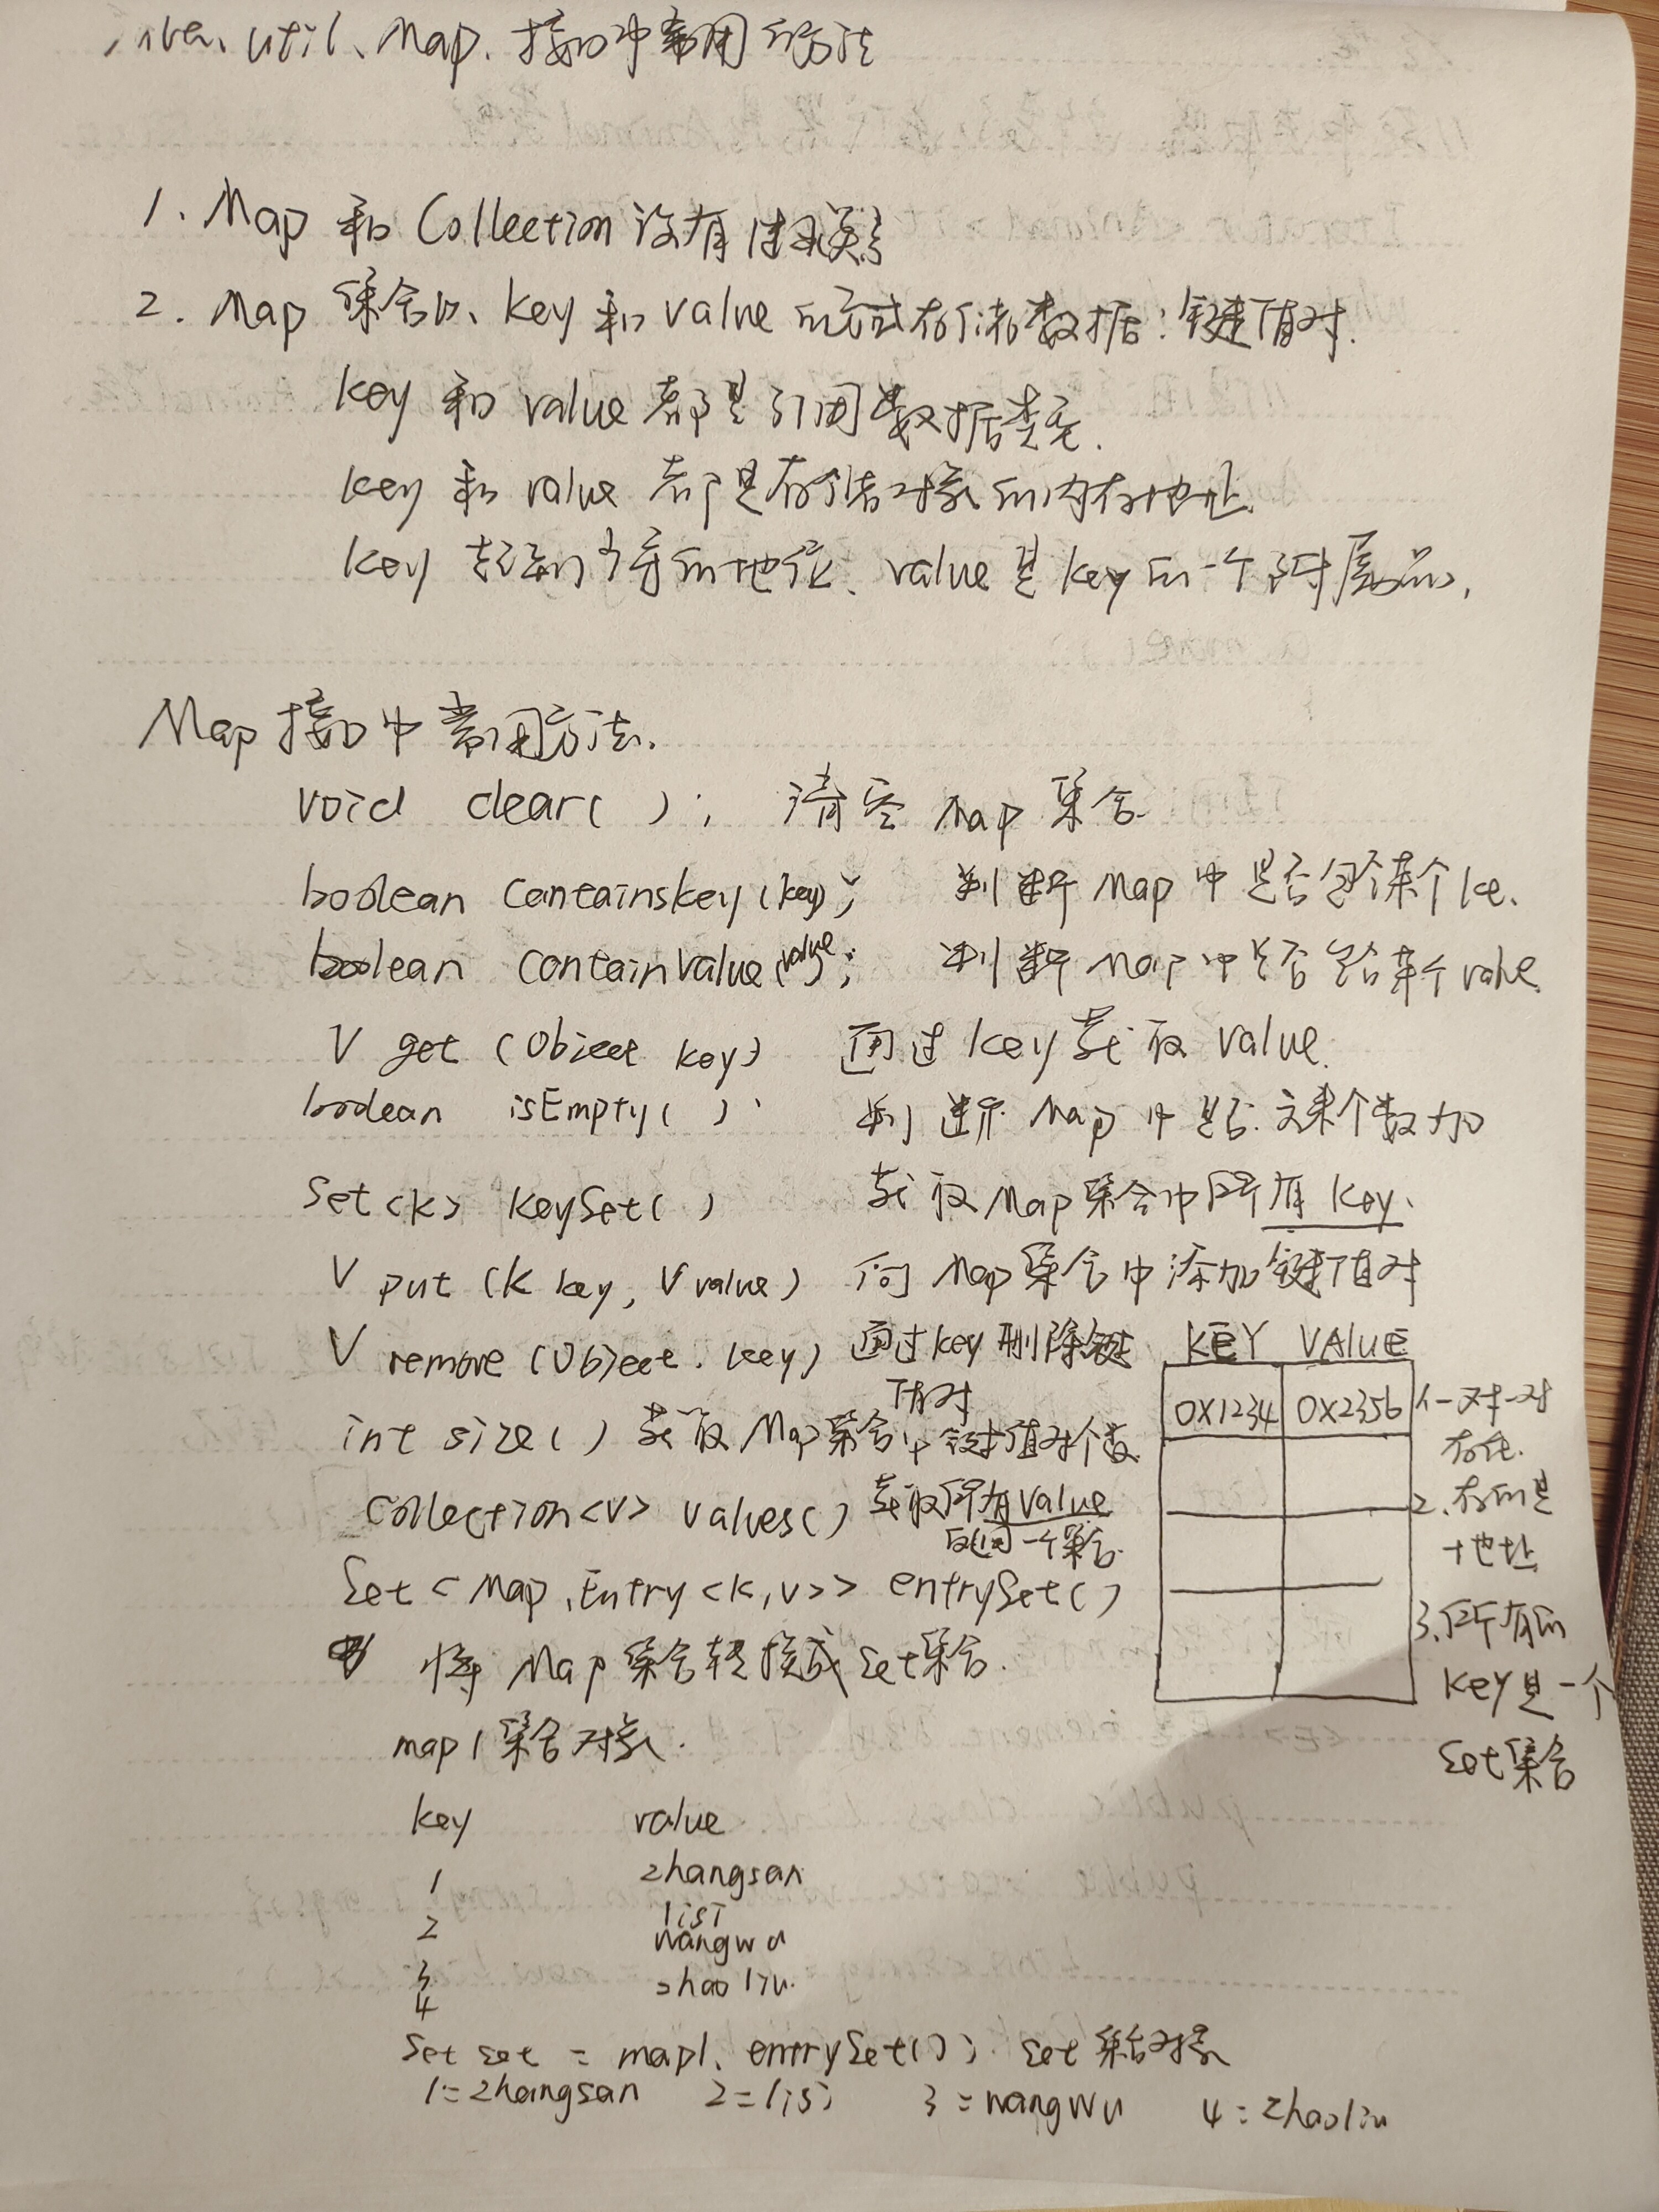 java.util.Map.接口中常用的方法
1. Map 和 Collection 没有继承关系
2. Map 集合以 key 和 value 的方式存储数据:键值对.
key 和 value 都是引用数据类型.
key 和 value 都是存储对象的内存地址.
key 起到主导的地位. value 是 key 的一个附属品.
Map 接口中常用方法.
void clear( ); 清空 Map 集合
boolean containskey(key); 判断 Map 中是否包含某个 ke.
boolean containvalue(value); 判断 Map 中是否包含某个 value.
V get (Object key) 通过 key 获取 value.
boolean isEmpty( ). 判断 Map 中是否 元素个数为0
Set<K> keySet( ) 获取 Map 集合中所有 key.
V put (K key, V value) 向 Map 集合中添加键值对
V remove (Object. key) 通过 key 删除键
值对
int size( ) 获取 Map 集合中键值对个数.
Collection<V> values( ) 获取所有 value
返回一个集合.
Set < Map.Entry <K,V>> entrySet( )
将 Map 集合转换成 Set集合.
KEY VALUE
0X1234 0X2356
1.一对一对
存在.
2.存的是
地址
3.所有的
key是一个
Set集合
map1集合对象.
key value
1 zhangsan
2 lisi
3 wangwu
4 zhaoliu.
Set set = map1. entrySet( ); Set 集合对象
1=zhangsan 2=lisi 3=wangwu 4=zhaoliu